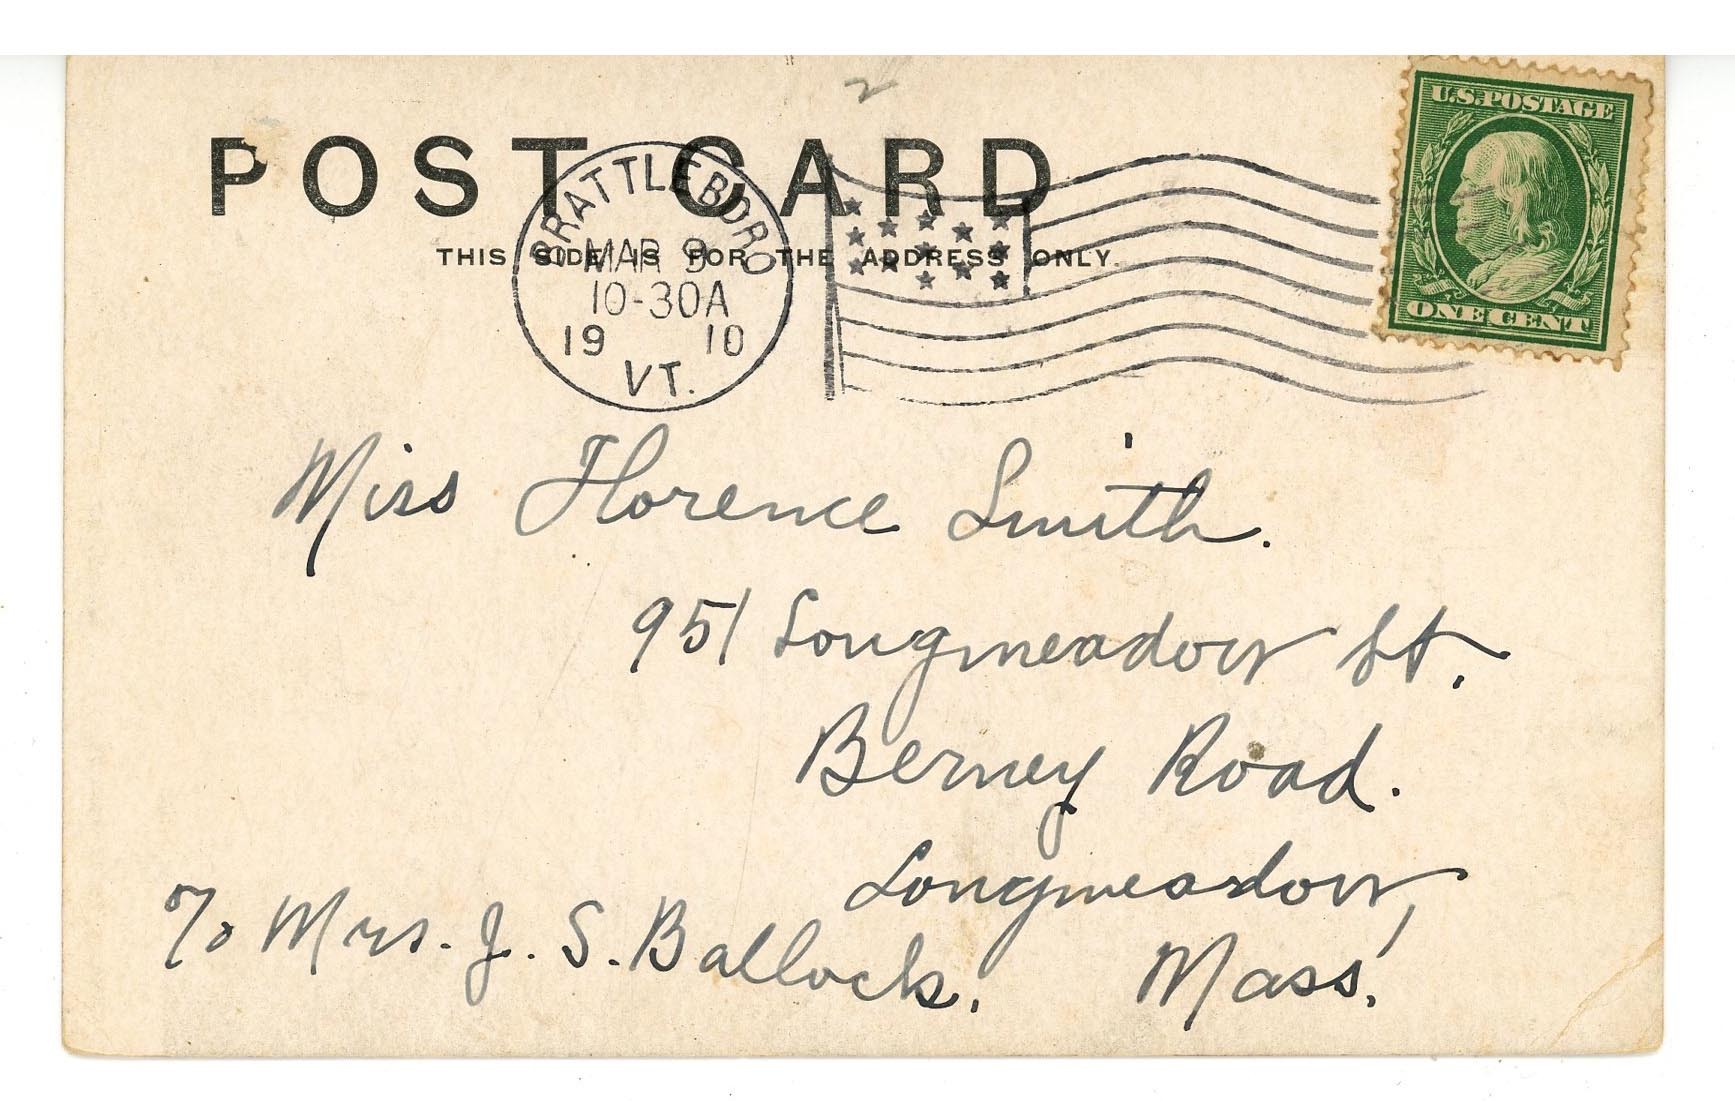 2
U.S. POSTAGE
POST CARD
THIS SIDE IS FOR THE ADDRESS ONLY.
BRATTLEBORO
MAR 9
10-30A
19 10
VT.
ONE CENT
Miss Florence Smith.
951 Longmeadow St.
Berney Road.
Longmeadow,
c/o Mrs. J. S. Ballock.
Mass.